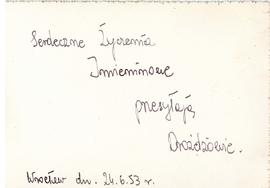 Serdeczne Życzenia
Imieninowe
przesyłają
Drożdżowie.
Wrocław dn. 24.6.53 r.